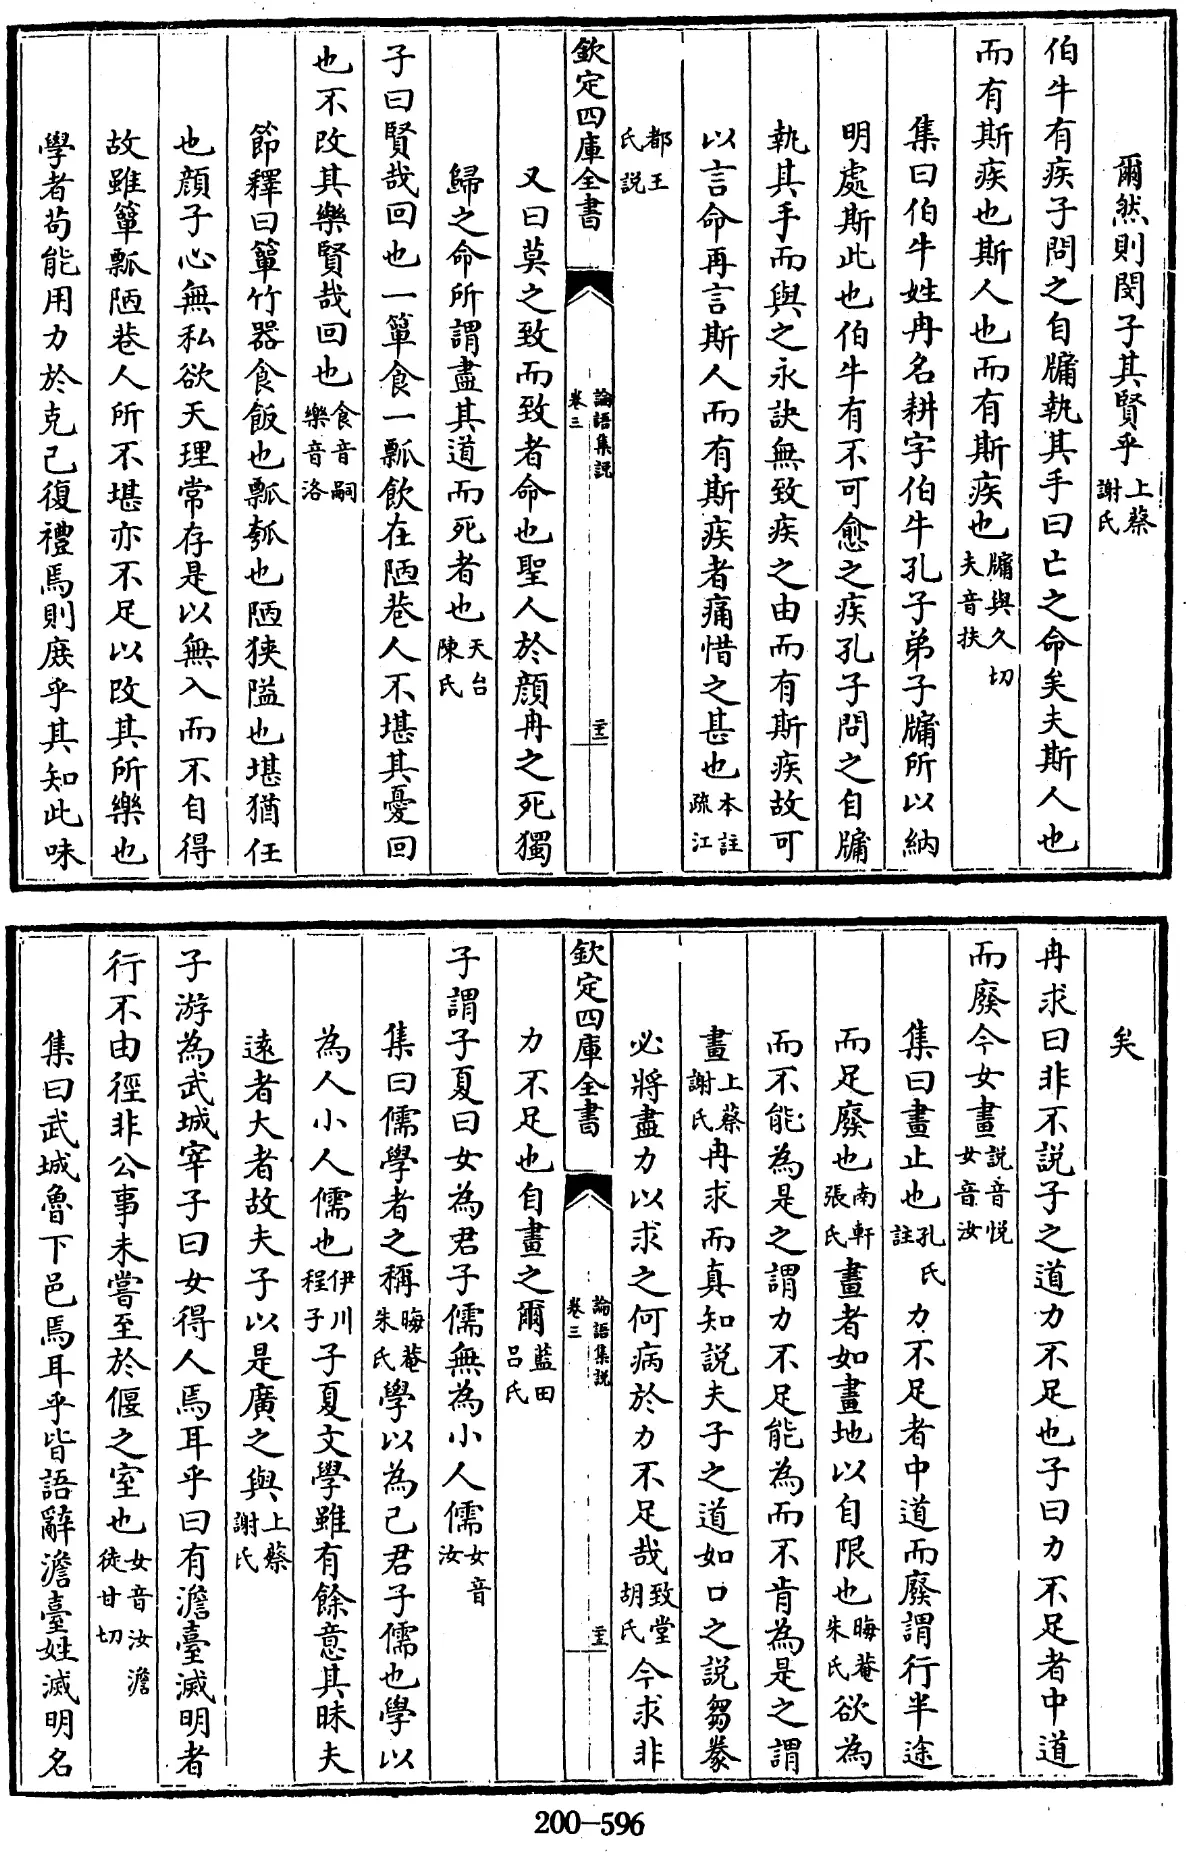 爾然則閔子其賢乎上蔡謝氏
伯牛有疾子問之自牖執其手曰亡之命矣夫斯人也
而有斯疾也斯人也而有斯疾也牖與久切夫音扶
集曰伯牛姓冉名耕字伯牛孔子弟子牖所以納
明處斯此也伯牛有不可愈之疾孔子問之自牖
執其手而與之永訣無致疾之由而有斯疾故可
以言命再言斯人而有斯疾者痛惜之甚也本註疏江
都王氏説
欽定四庫全書
論語集説
卷三
又曰莫之致而致者命也聖人於顔冉之死獨
歸之命所謂盡其道而死者也天台陳氏
子曰賢哉回也一簞食一瓢飲在陋巷人不堪其憂回
也不改其樂賢哉回也食音嗣樂音洛
節釋曰簞竹器食飯也瓢瓠也陋狭隘也堪猶任
也顔子心無私欲天理常存是以無入而不自得
故雖簞瓢陋巷人所不堪亦不足以改其所樂也
學者苟能用力於克己復禮焉則庶乎其知此味
矣
冉求曰非不説子之道力不足也子曰力不足者中道
而廢今女畫説音悦女音汝
集曰畫止也孔氏註力不足者中道而廢謂行半途
而足廢也南軒張氏畫者如畫地以自限也晦菴朱氏欲為
而不能為是之謂力不足能為而不肯為是之謂
畫上蔡謝氏冉求而真知説夫子之道如口之説芻豢
必將盡力以求之何病於力不足哉致堂胡氏今求非
欽定四庫全書
論語集説
卷三
力不足也自畫之爾藍田呂氏
子謂子夏曰女為君子儒無為小人儒女音汝
集曰儒學者之稱晦菴朱氏學以為己君子儒也學以
為人小人儒也伊川程子子夏文學雖有餘意其昧夫
遠者大者故夫子以是廣之與上蔡謝氏
子游為武城宰子曰女得人焉耳乎曰有澹臺滅明者
行不由徑非公事未嘗至於偃之室也女音汝澹徒甘切
集曰武城魯下邑焉耳乎皆語辭澹臺姓滅明名
200-596